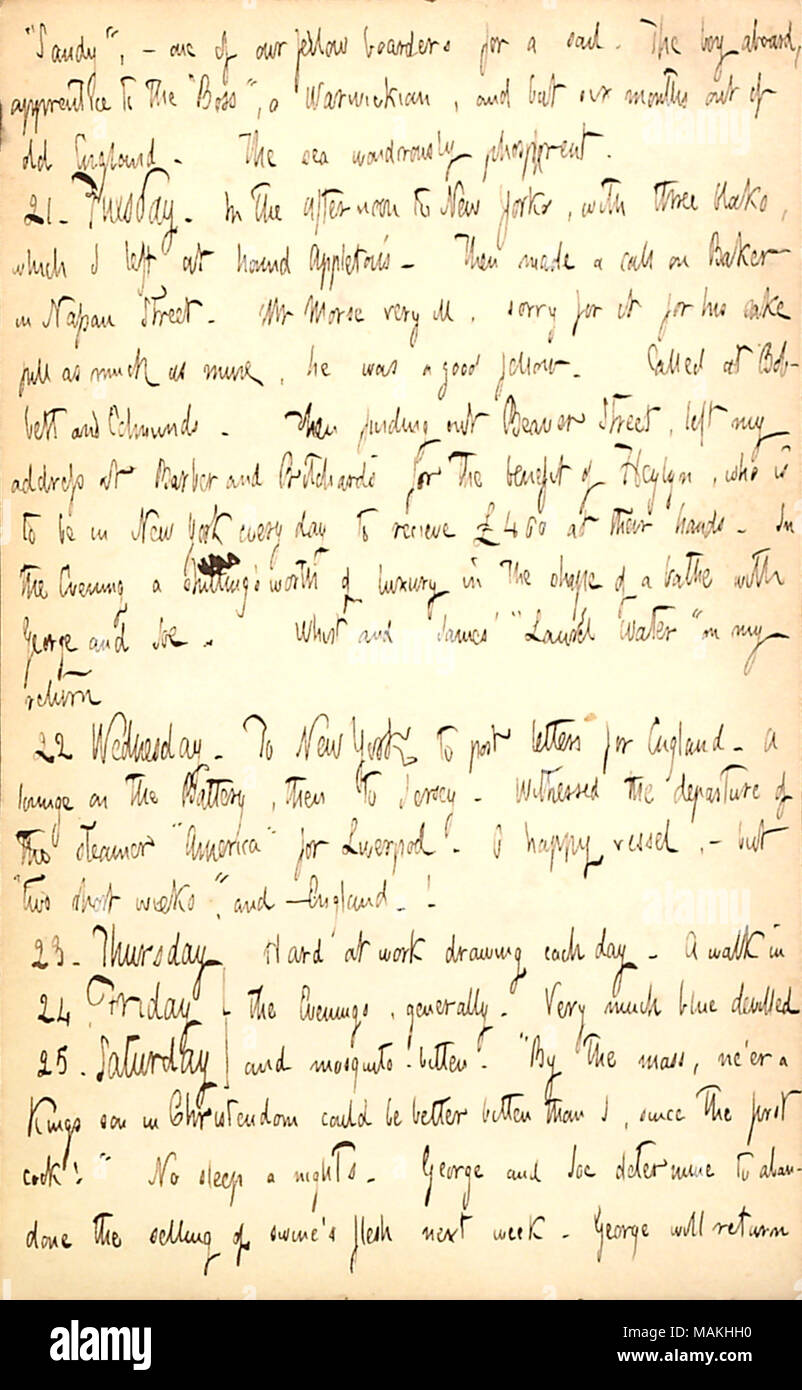 "Sandy", - one of our fellow boarders for a sail. The boy aboard,
apprentice to the "Boss", a Warwickian, and but six months out of
old England. The sea wondrously phosphorent.
21. Tuesday. In the afternoon to New York, with three blocks,
which I left at hound Appleton's. Then made a call on Baker
in Nassau Street. Mr Morse very ill, sorry for it for his sake
full as much as mine, he was a good fellow. Called at Bob-
bett and Edmunds. Then finding out Beaver Street, left my
address at Barber and Pritchards for the benefit of Heylyn, who is
to be in New York every day to recieve £400 at their hands. In
the Evening a shilling's worth of luxury in the shape of a bathe with
George and Joe. Whist and James' "Laurel Water" on my
return
22 Wednesday. To New York, to post letters for England. A
lounge on the Battery, then to Jersey. Witnessed the departure of
the steamer "America" for Liverpool. O happy vessel, - but
"two short weeks", and - England. !
23. Thursday Hard at work drawing each day. A walk in
24. Friday the Evenings, generally. Very much blue devilled
25. Saturday and mosquito-bitten. "By the mass, ne'er a
Kings son in Christendom could be better bitten than I, since the first
cock!" No sleep a nights. George and Joe determine to aban-
done the selling of swine's flesh next week. George will return
alamy
Image ID: MAKHH0
www.alamy.com